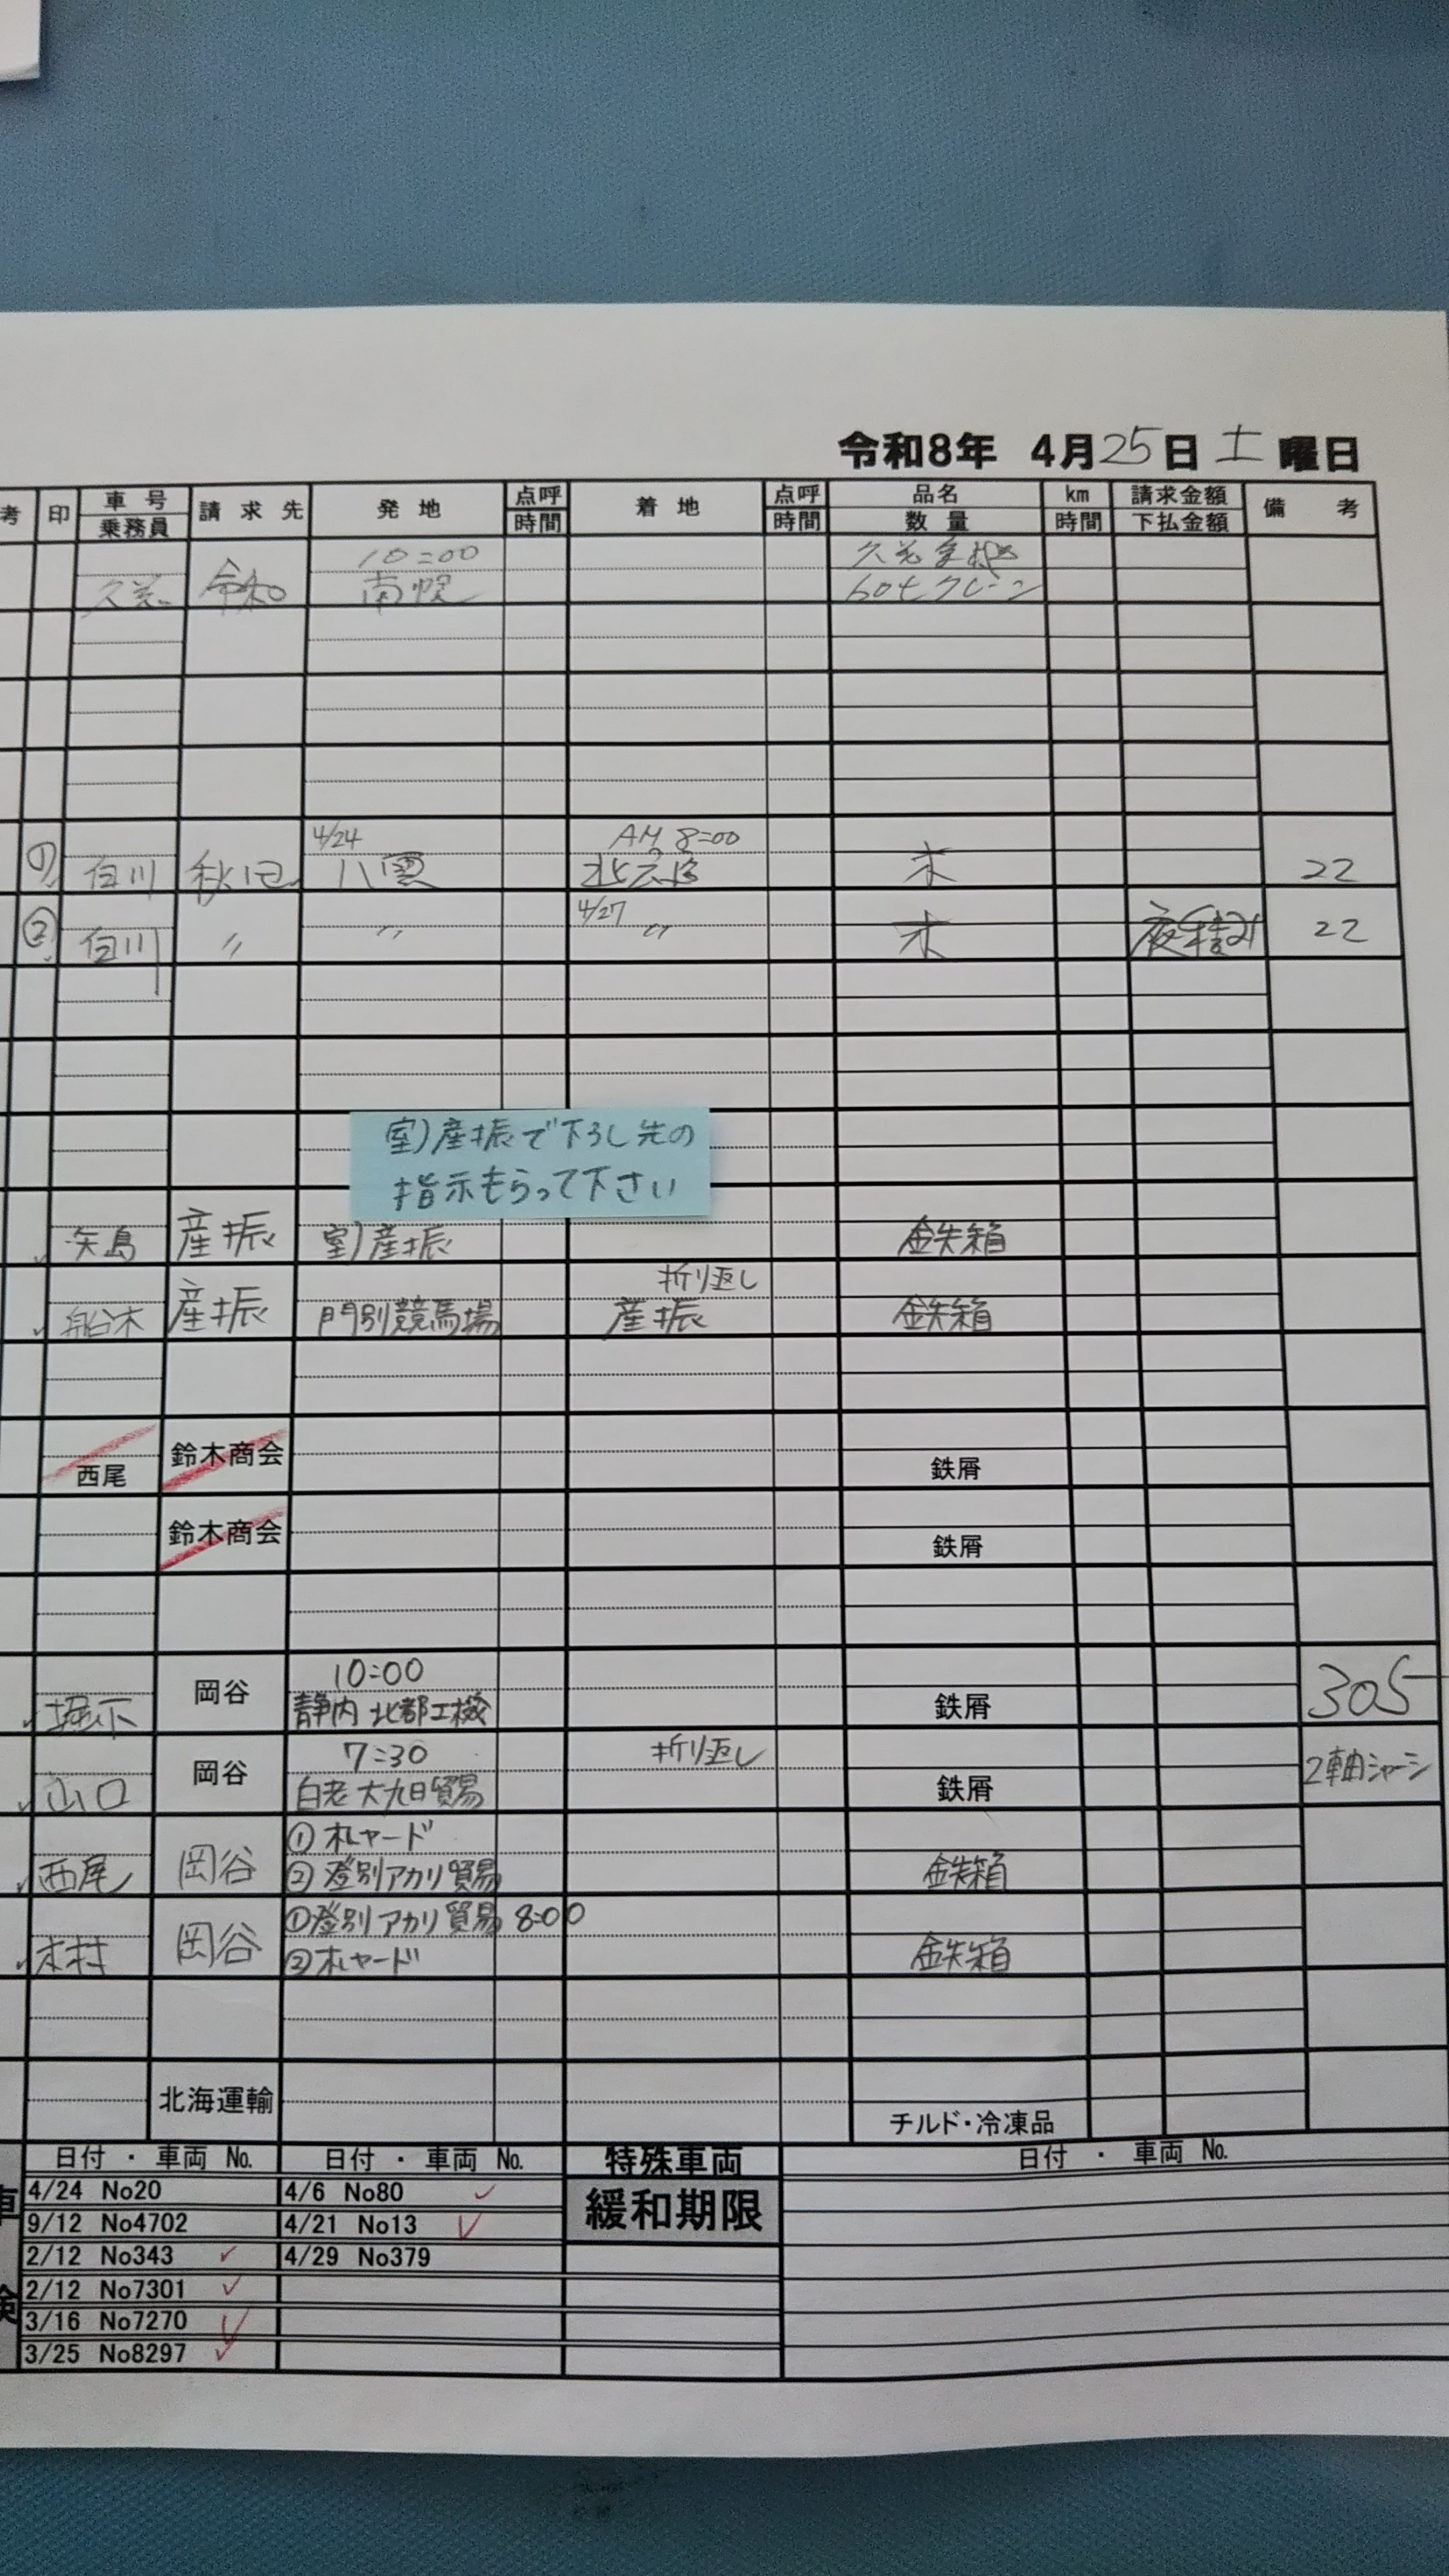 令和8年 4月25日 土曜日
考 印 車号 請求先 発地 点呼 着地 点呼 品名 km 請求金額 備考
乗務員 時間 時間 数量 時間 下払金額
10:00
令和 南幌 60tクレーン
4/24 AM 8:00
① 白川 秋田 八雲 北広島 木 22
4/27
② 白川 〃 〃 〃 木 夜積み 22
室)産振で下ろし先の
指示もらって下さい
矢島 産振 室)産振 鉄箱
折り返し
船木 産振 門別競馬場 産振 鉄箱
西尾 鈴木商会 鉄屑
鈴木商会 鉄屑
10:00
堀下 岡谷 静内 北都工機 鉄屑 305
7:30 折り返し
山口 岡谷 白老 大九日貿易 鉄屑 2軸シャーシ
① 札ヤード
西尾 岡谷 ② 登別アカリ貿易 鉄箱
①登別アカリ貿易 8:00
木村 岡谷 ②札ヤード 鉄箱
北海運輸 チルド・冷凍品
日付 ・ 車両 No. 日付 ・ 車両 No. 特殊車両 日付 ・ 車両 No.
緩和期限
4/24 No20 4/6 No80
9/12 No4702 4/21 No13
2/12 No343 4/29 No379
2/12 No7301
3/16 No7270
3/25 No8297